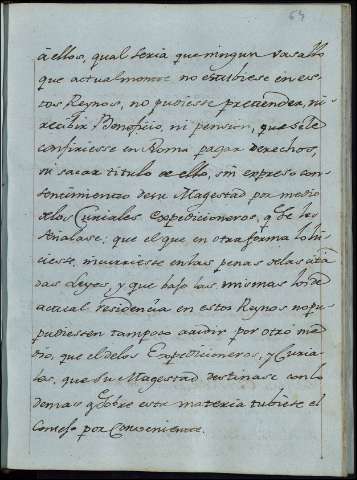 64
à ellos, qual seria que ningun vasallo
que actualmente no estubiese en es-
tos Reynos, no pudiese pretender, ni
recibir Beneficio, ni pension, que se le
confiriese en Roma pagar derechos,
ni sacar titulo de ello, sin expreso con-
sentimiento de su Magestad por medio
de los Curiales Expedicioneros, q.e les
señalase; que el que en otra forma lo hi-
ciese, incurriese en las penas de las cita-
das Leyes, y que bajo las mismas los de
actual residencia en estos Reynos no pu-
pudiessen tampoco acudir por otro me-
dio, que el de los Expedicioneros, y Curia-
les, que Su Magestad destinase con lo
demas q.e sobre esta materia tubiese el
Consejo por Conveniente.